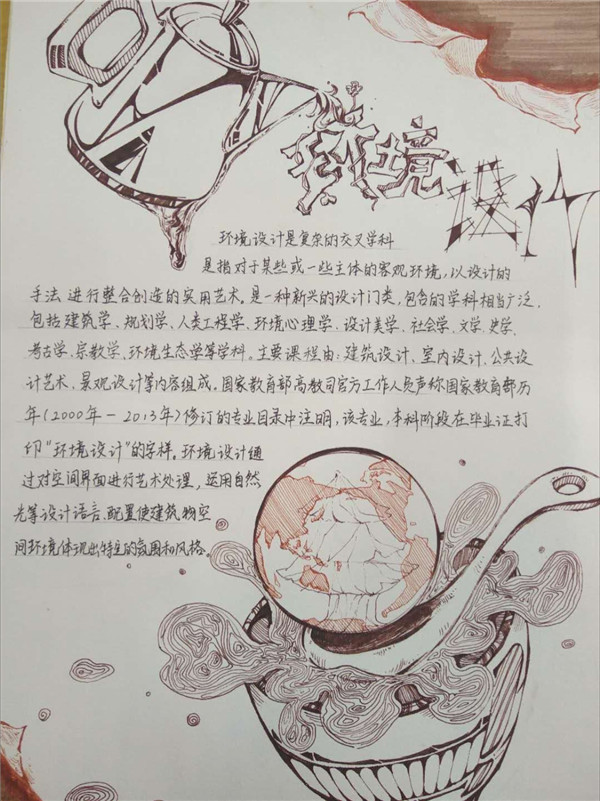 环境设计
环境设计是复杂的交叉学科
是指对于某些或一些主体的客观环境,以设计的
手法、进行整合创造的实用艺术。是一种新兴的设计门类,包含的学科相当广泛、
包括建筑学、规划学、人类工程学、环境心理学、设计美学、社会学、文学、史学、
考古学、宗教学、环境生态学等学科。主要课程由:建筑设计、室内设计、公共设
计艺术、景观设计等内容组成。国家教育部高教司官方工作人员声称国家教育部历
年(2000年-2013年)修订的专业目录中注明,该专业,本科阶段在毕业证打
印"环境设计"的字样。环境设计通
过对空间界面进行艺术处理,运用自然
光等设计语言、配置使建筑物空
间环境体现出特定的氛围和风格。